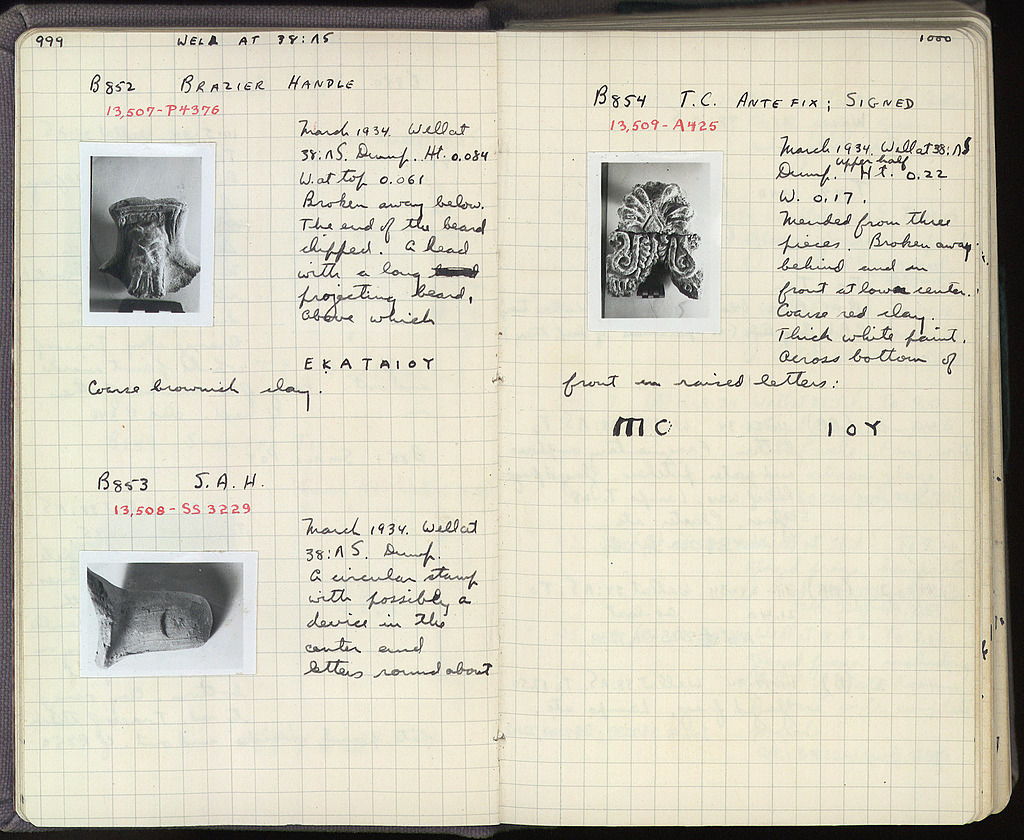 999
WELL AT 38:ΛS
B852 BRAZIER HANDLE
13,507-P4376
March 1934. Well at
38:ΛS. Dump. Ht. 0.084
W. at top 0.061
Broken away below.
The end of the beard
chipped. A head
with a long
projecting beard,
above which
ΕΚΑΤΑΙΟΥ
Coarse brownish clay.
B853 S.A.H.
13,508-SS 3229
March 1934. Well at
38:ΛS. Dump.
A circular stamp
with possibly a
device in the
center and
letters round about
1000
B854 T.C. ANTEFIX; SIGNED
13,509-A425
March 1934. Well at 38:ΛS
Dump. upper half Ht. 0.22
W. 0.17.
Mended from three
pieces. Broken away
behind and in
front at lower center.
Coarse red clay.
Thick white paint.
Across bottom of
front in raised letters:
ΠC ΙΟΥ